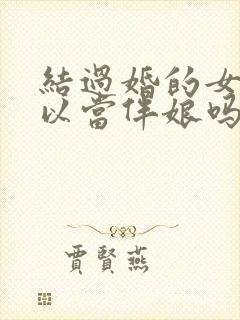 結過婚的女
以當伴娘吗
賈賢燕